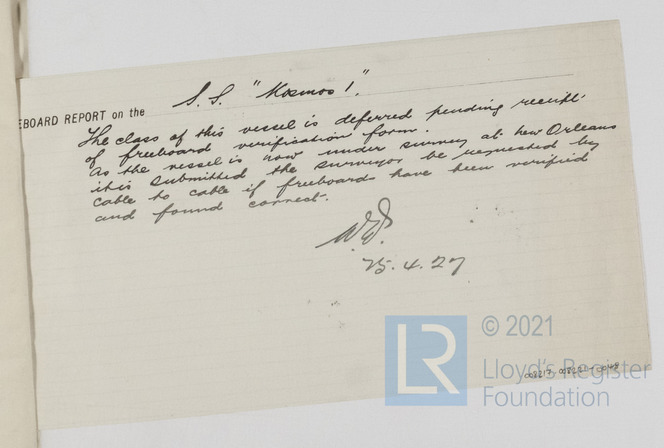 EBOARD REPORT on the S. S. "Kosmos 1."
The class of this vessel is deferred pending receipt
of freeboard verification form.
As the vessel is now under survey at New Orleans
it is submitted the surveyor be requested by
cable to cable if freeboards have been verified
and found correct.
25.4.27
LR
© 2021
Lloyd's Register
Foundation